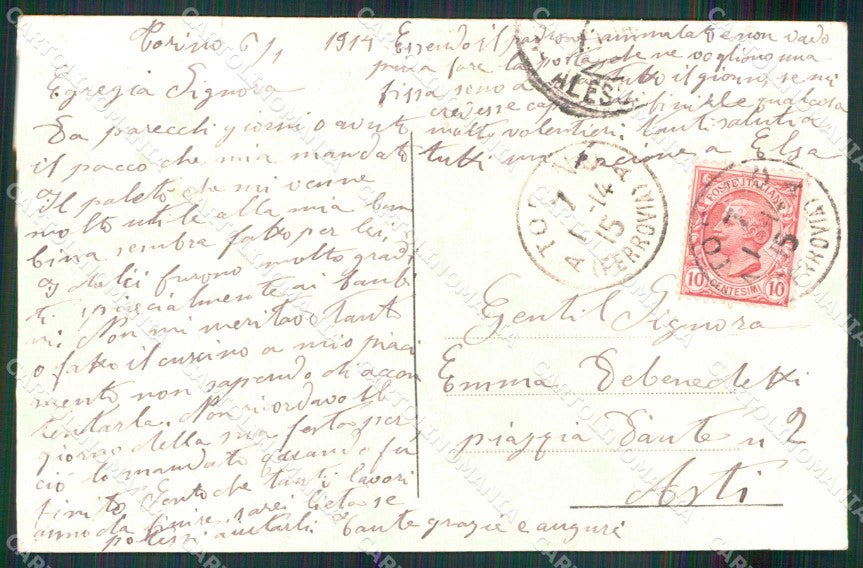 Torino 6/1 1914
Egregia Signora
Da parecchi giorni o avuto
il pacco che mia mandato
Il paletò che mi venne
molto utile alla mia bam
bina sembra fatto per lei,
furono molto gradi
ti specialmente ai bambi
ni. Non mi meritavo tant
o fatto il cuscino a mio piaci
mento non sapendo di accon
tentarla. Non ricordavo il
giorno della sua festa per
ciò lo mandato quando fu
finito. Sento che tanti lavori
da finire, sarei lieta se
potessi aiutarli Tante grazie e auguri
Essendo il padrone ammalato e non vado
più a fare la porta che ne vogliono una
fissa sono a tutto il giorno, se mi
credesse finirle qualcosa
molto volentieri tanti saluti a
tutti un bacione a Elsa
ALESS
TORINO
(FERROVIA)
7
1-14
15
POSTE ITALIANE
10 CENTESIMI 10
(FERROVIA)
Gentil Signora
Emma Debenedetti
piazzia Dante n 2
Asti
CARTOLINOMANIA